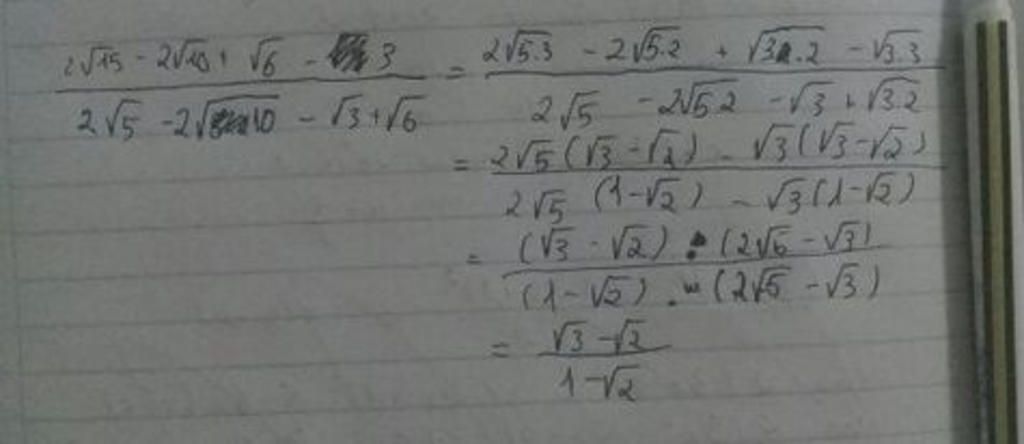 (2√15 - 2√10 + √6 - 3)/(2√5 - 2√10 - √3 + √6) = (2√5.3 - 2√5.2 + √3.2 - √3.3)/(2√5 - 2√5.2 - √3 + √3.2)
= (2√5 (√3 - √2) - √3 (√3 - √2))/(2√5 (1 - √2) - √3 (1 - √2))
= ((√3 - √2) . (2√6 - √3))/((1 - √2) . (2√5 - √3))
= (√3 - √2)/(1 - √2)